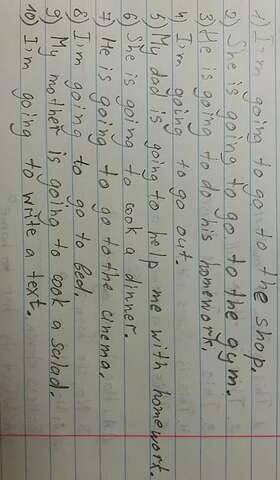 1) I'm going to go to the shop.
2) She is going to go to the gym.
3) He is going to do his homework.
4) I'm going to go out.
5) My dad is going to help me with homework.
6) She is going to cook a dinner.
7) He is going to go to the cinema.
8) I'm going to go to bed.
9) My mother is going to cook a salad.
10) I'm going to write a text.